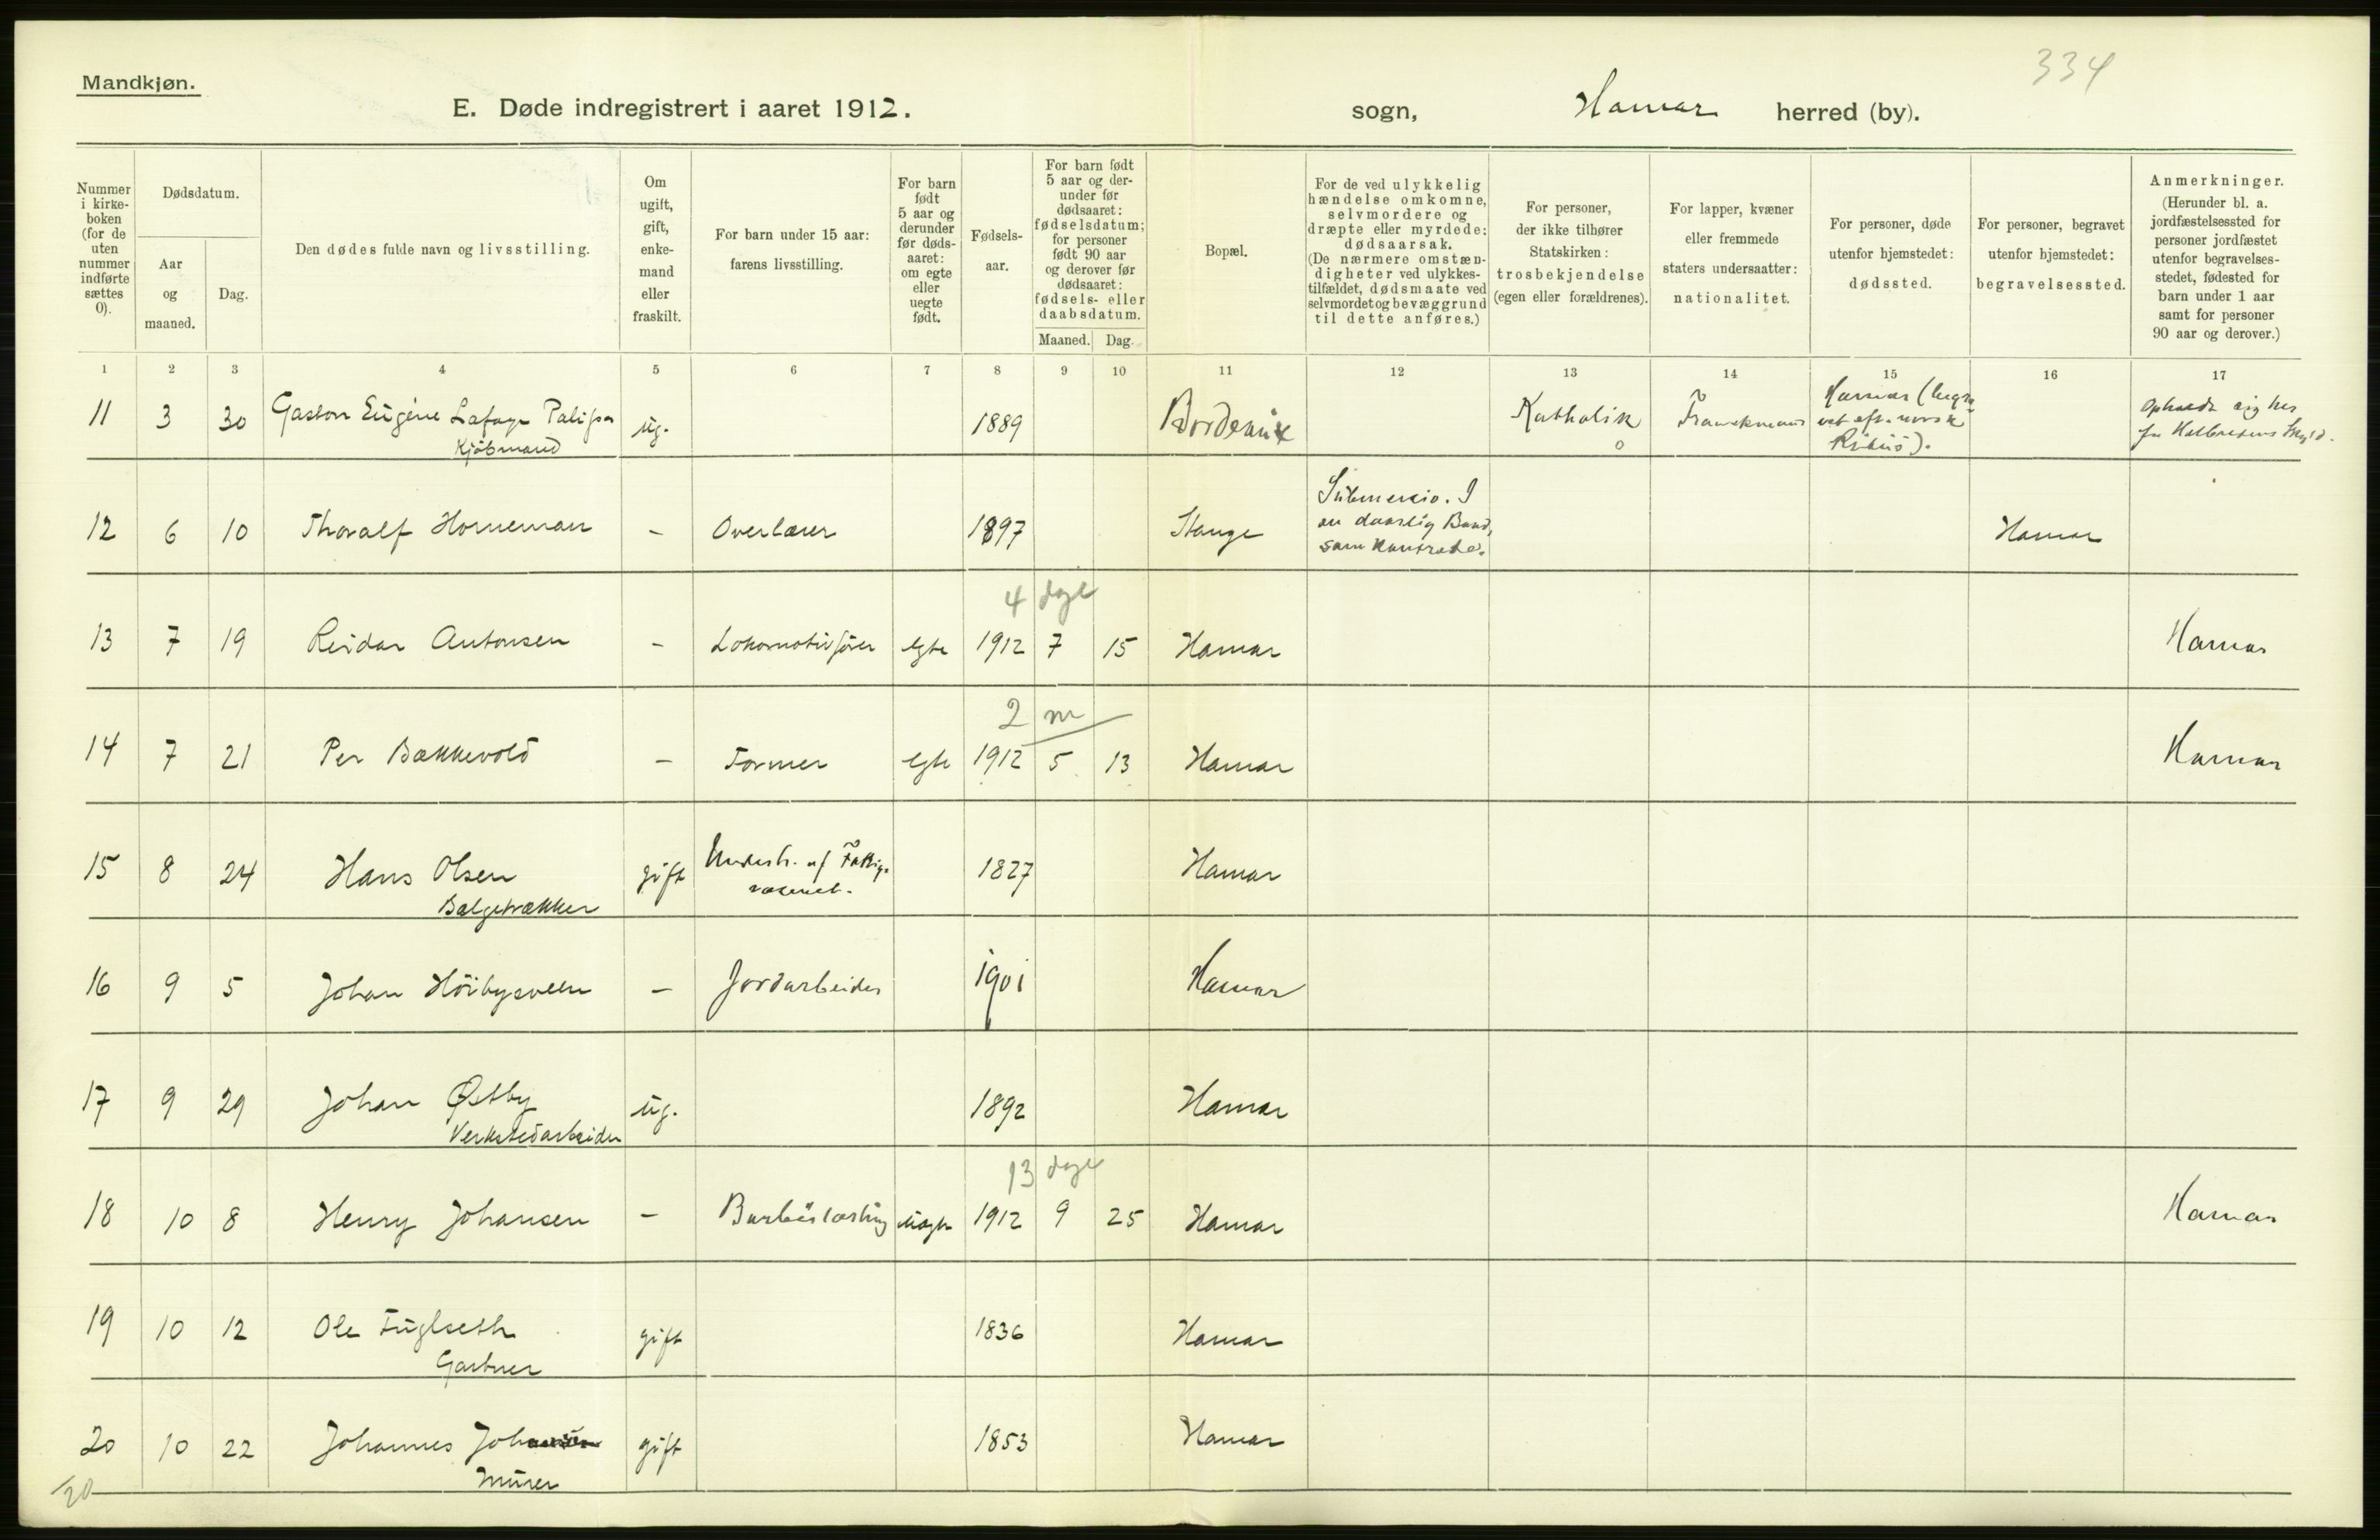 334
Mandkjøn.
E. Døde indregistrert i aaret 1912. sogn, Hamar herred (by).
Nummer i kirke- boken (for de uten nummer indførte sættes 0).
Dødsdatum.
Aar og maaned.
Dag.
Den dødes fulde navn og livsstilling.
Om ugift, gift, enke- mand eller fraskilt.
For barn under 15 aar: farens livsstilling.
For barn født 5 aar og derunder før døds- aaret: om egte eller uegte født.
Fødsels- aar.
For barn født 5 aar og der- under før dødsaaret: fødselsdatum; for personer født 90 aar og derover før dødsaaret: fødsels- eller daabsdatum.
Maaned. Dag.
Bopæl.
For de ved ulykkelig hændelse omkomne, selvmordere og dræpte eller myrdede: dødsaarsak. (De nærmere omstæn- digheter ved ulykkes- tilfældet, dødsmaate ved selvmordet og bevæggrund til dette anføres.)
For personer, der ikke tilhører Statskirken: trosbekjendelse (egen eller forældrenes).
For lapper, kvæner eller fremmede staters undersaatter: nationalitet.
For personer, døde utenfor hjemstedet: dødssted.
For personer, begravet utenfor hjemstedet: begravelsessted.
Anmerkninger. (Herunder bl. a. jordfæstelsessted for personer jordfæstet utenfor begravelses- stedet, fødested for barn under 1 aar samt for personer 90 aar og derover.)
1 2 3 4 5 6 7 8 9 10 11 12 13 14 15 16 17
11 3 30 Gaston Eugéne Lafage ug. 1889 Bordeaux Katholik Franskmand Hamar
Kjøbmand
12 6 10 Thoralf Horneman - Overlærer 1897 Stange Submersio. I en daarlig Baad, som kantrede. Hamar
4 dage
13 7 19 Reidar Antonsen - Lokomotivfører egte 1912 7 15 Hamar Hamar
2 m
14 7 21 Per Bækkevold - Former egte 1912 5 13 Hamar Hamar
15 8 24 Hans Olsen gift Underst. af Fattig- væsenet. 1827 Hamar
Bælgetrækker
16 9 5 Johan Höibysveen - Jordarbeider 1901 Hamar
17 9 29 Johan Østby ug. 1892 Hamar
Verkstedarbeider
13 dage
18 10 8 Henry Johansen - uegte 1912 9 25 Hamar Hamar
19 10 12 Ole Fuglseth gift 1836 Hamar
Gartner
20 10 22 Johannes gift 1853 Hamar
Murer
/20